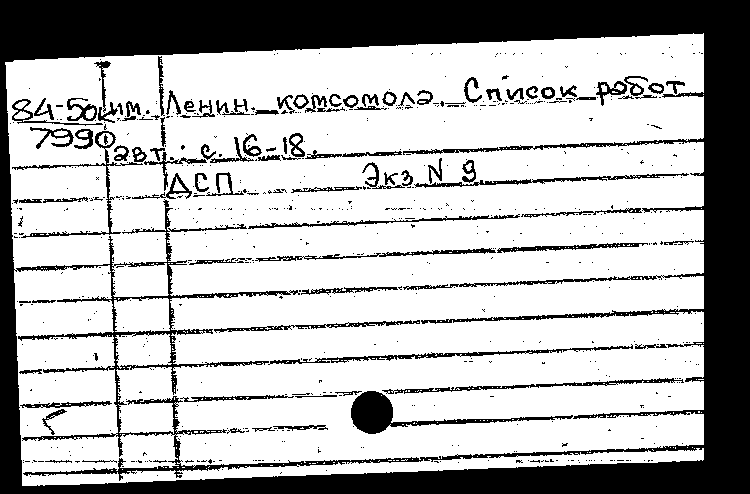 84-50 им. Ленин. комсомола. Список работ
7990 авт.: с. 16-18.
ДСП. Экз N 9